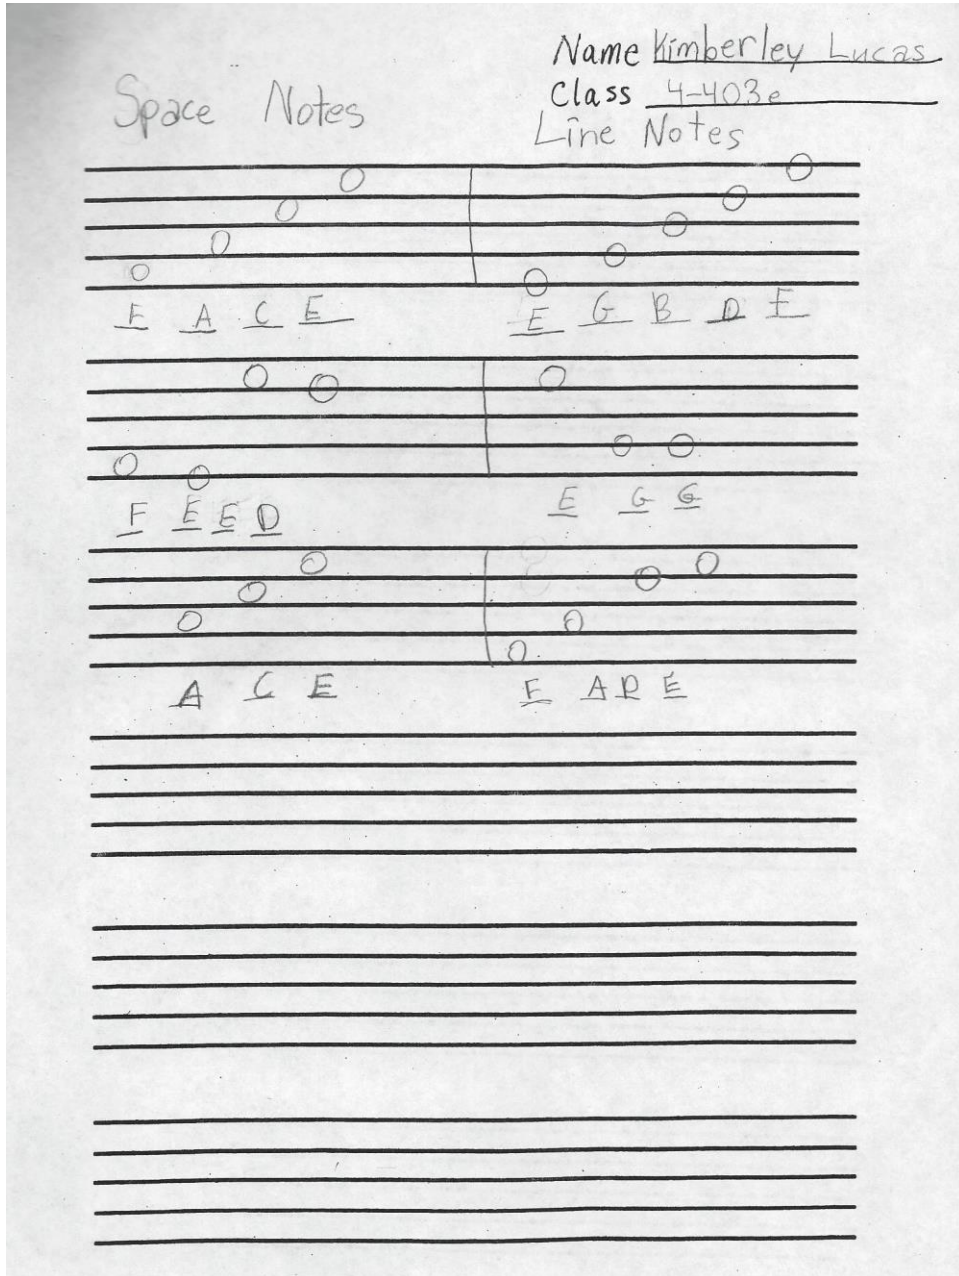 Name Kimberley Lucas
Class 4-403e
Space Notes
Line Notes
F A C E
E G B D F
F E E D
E G G
A C E
F A D E